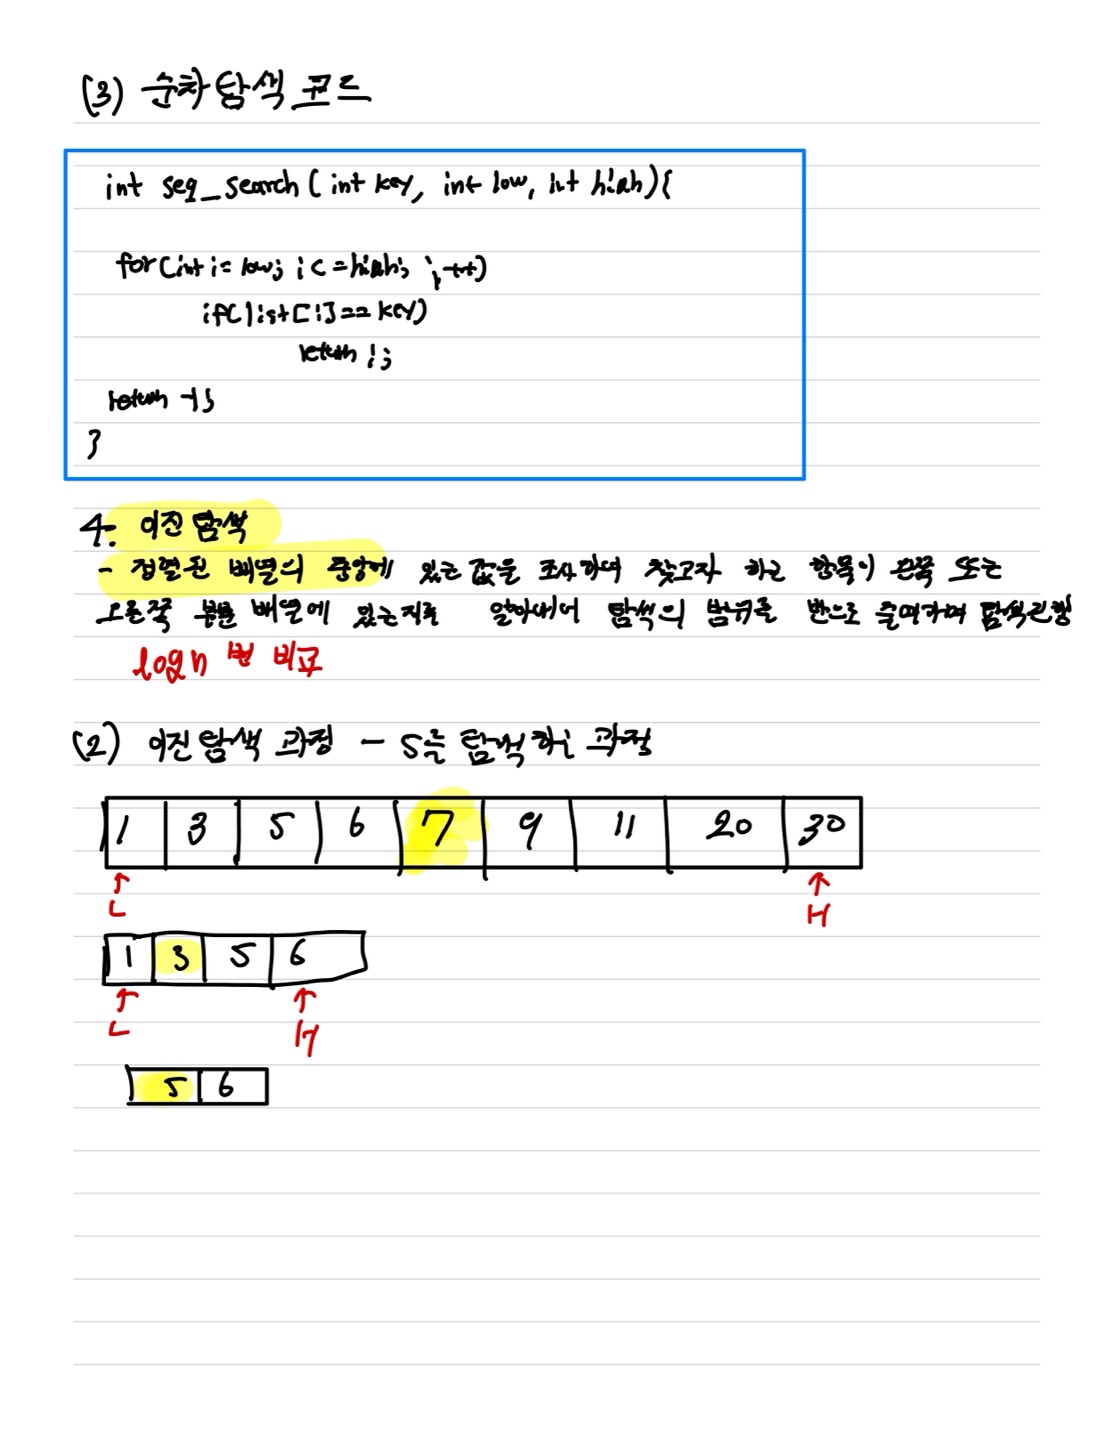 (3) 순차탐색 코드
int seq_search ( int key, int low, int high){
for(int i= low; i<=high; i++)
if(list[i]==key)
return i;
return -1;
}
4. 이진 탐색
- 정렬된 배열의 중앙에 있는 값을 조사하여 찾고자 하는 항목이 왼쪽 또는
오른쪽 부분 배열에 있는지를 알아내어 탐색의 범위를 반으로 줄여가며 탐색진행
log n 번 비교
(2) 이진탐색 과정 - 5을 탐색하는 과정
1 3 5 6 7 9 11 20 30
L H
1 3 5 6
L H
5 6